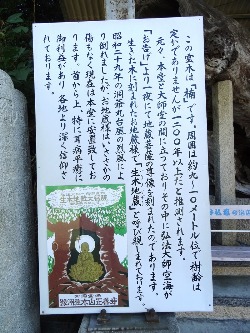 この霊木は「楠」です。周囲は約九〜一〇メートル位で樹齢は
定かでありませんが一二〇〇年以上だと推測されます。
元々、本堂と大師堂の間に立っておりその中に弘法大師空海が
「お告げ」より一夜にて地蔵菩薩の尊像を刻まれたのであります
生きた木に刻まれたお地蔵様で「生木地蔵」と呼び親しまれております。
昭和二十九年の洞爺丸台風の烈風によ
り倒れましたがお地蔵様はいささかの
傷もなく現在は本堂に安置致してお
ります。首から上、特に耳病平癒に
御利益があり各地より深く信仰さ
れております。
生木地蔵大菩薩
生木山正善寺